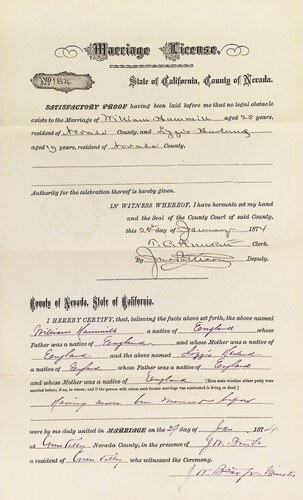 Marriage License.
No 184
State of California, County of Nevada.
SATISFACTORY PROOF having been laid before me that no legal obstacle
exists to the Marriage of William Hammill aged 25 years,
resident of Nevada County, and Lizzie
aged 19 years, resident of Nevada County.
Authority for the celebration thereof is hereby given.
IN WITNESS WHEREOF, I have hereunto set my hand
and the Seal of the County Court of said County,
this day of January 1874
Clerk.
By Deputy.
County of Nevada, State of California.
I HEREBY CERTIFY, that, believing the facts above set forth, the above named
William Hammill a native of England whose
Father was a native of England and whose Mother was a native of
England and the above named Lizzie
a native of England whose Father was a native of England
and whose Mother was a native of England
Having been married before
were by me duly united in MARRIAGE on the 29 day of Jan 1874
at Grass Valley Nevada County, in the presence of
a resident of Grass Valley who witnessed the Ceremony.